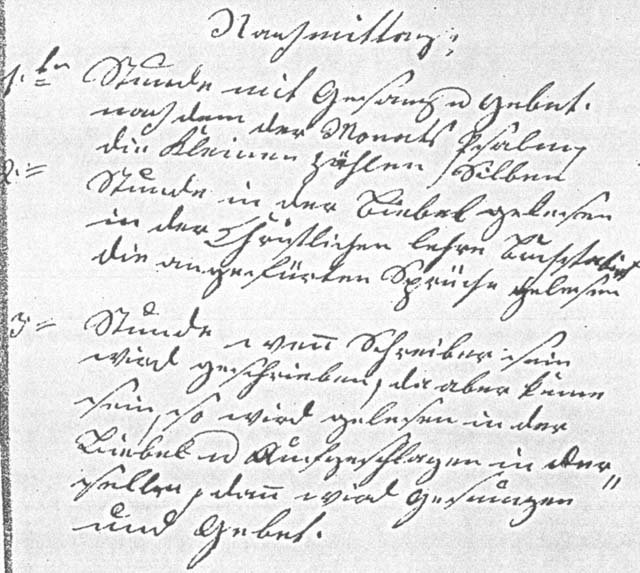 Nachmittag:
1.te Stunde mit Gesang u Gebet.
nach dem der Monats Psalm,
die Kleinen zählen Silben
2.= Stunde in der Biebel geleesen
in der Christlichen lehre Buchstabirt
die angefürten Sprüche geleesen
3= Stunde wenn Schreiber sein
wird geschrieben, da aber keine
sein, so wird gelesen in der
Biebel u Aufgeschlagen in der"
selben, dann wird gesungen
und Gebet.